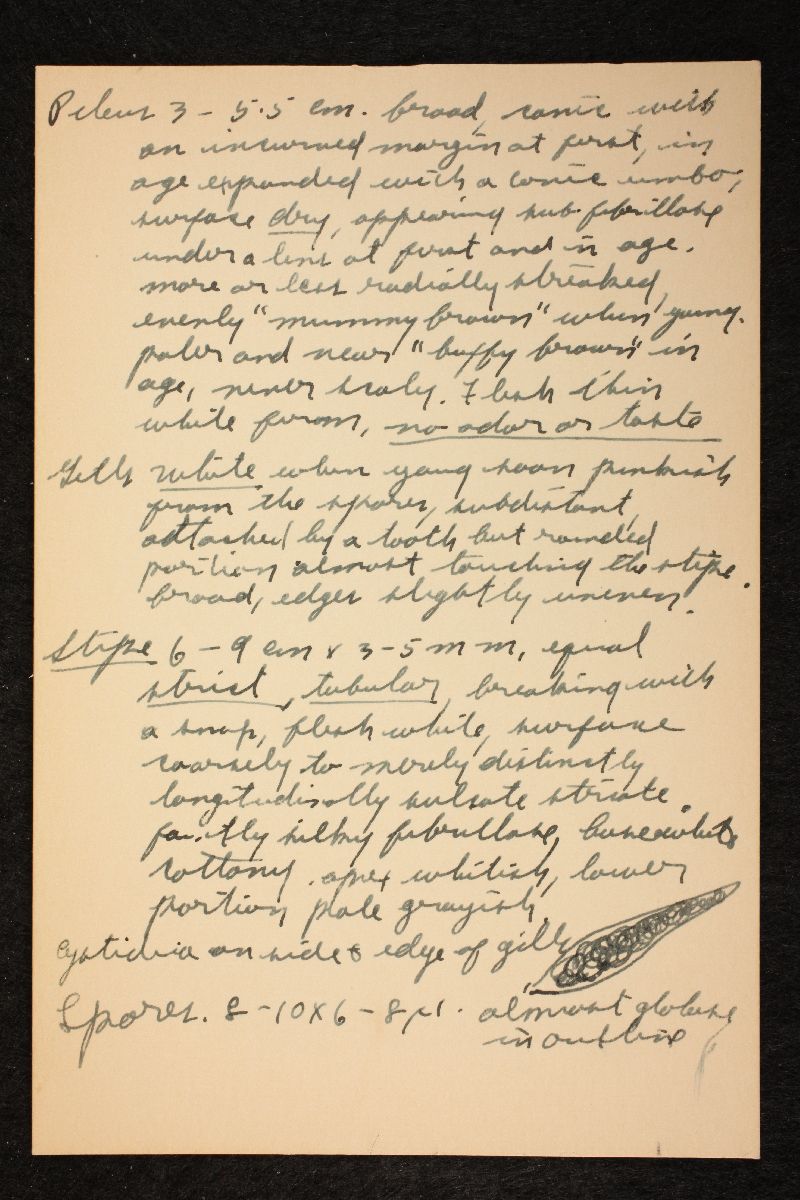 Pileus 3 - 5.5 cm. broad, conic with
an incurved margin at first, in
age expanded with a conic umbo,
surface dry, appearing sub-fibrillose
under a lens at first and in age.
more or less radially streaked,
evenly "mummy brown" when young.
paler and near "buffy brown" in
age, never scaly. Flesh thin
white firm, no odor or taste
Gills white when young soon pinkish
from the spores, subdistant,
attached by a tooth but rounded
portion almost touching the stipe.
broad, edges slightly uneven.
Stipe 6 - 9 cm x 3-5 mm, equal
strict, tubular, breaking with
a snap, flesh white, surface
coarsely to merely distinctly
longitudinally sulcate striate.
faintly silky fibrillose, base white
cottony. apex whitish, lower
portion pale grayish.
Cystidia on side & edge of gills
Spores. 8-10x6-8µ. almost globose
in outline